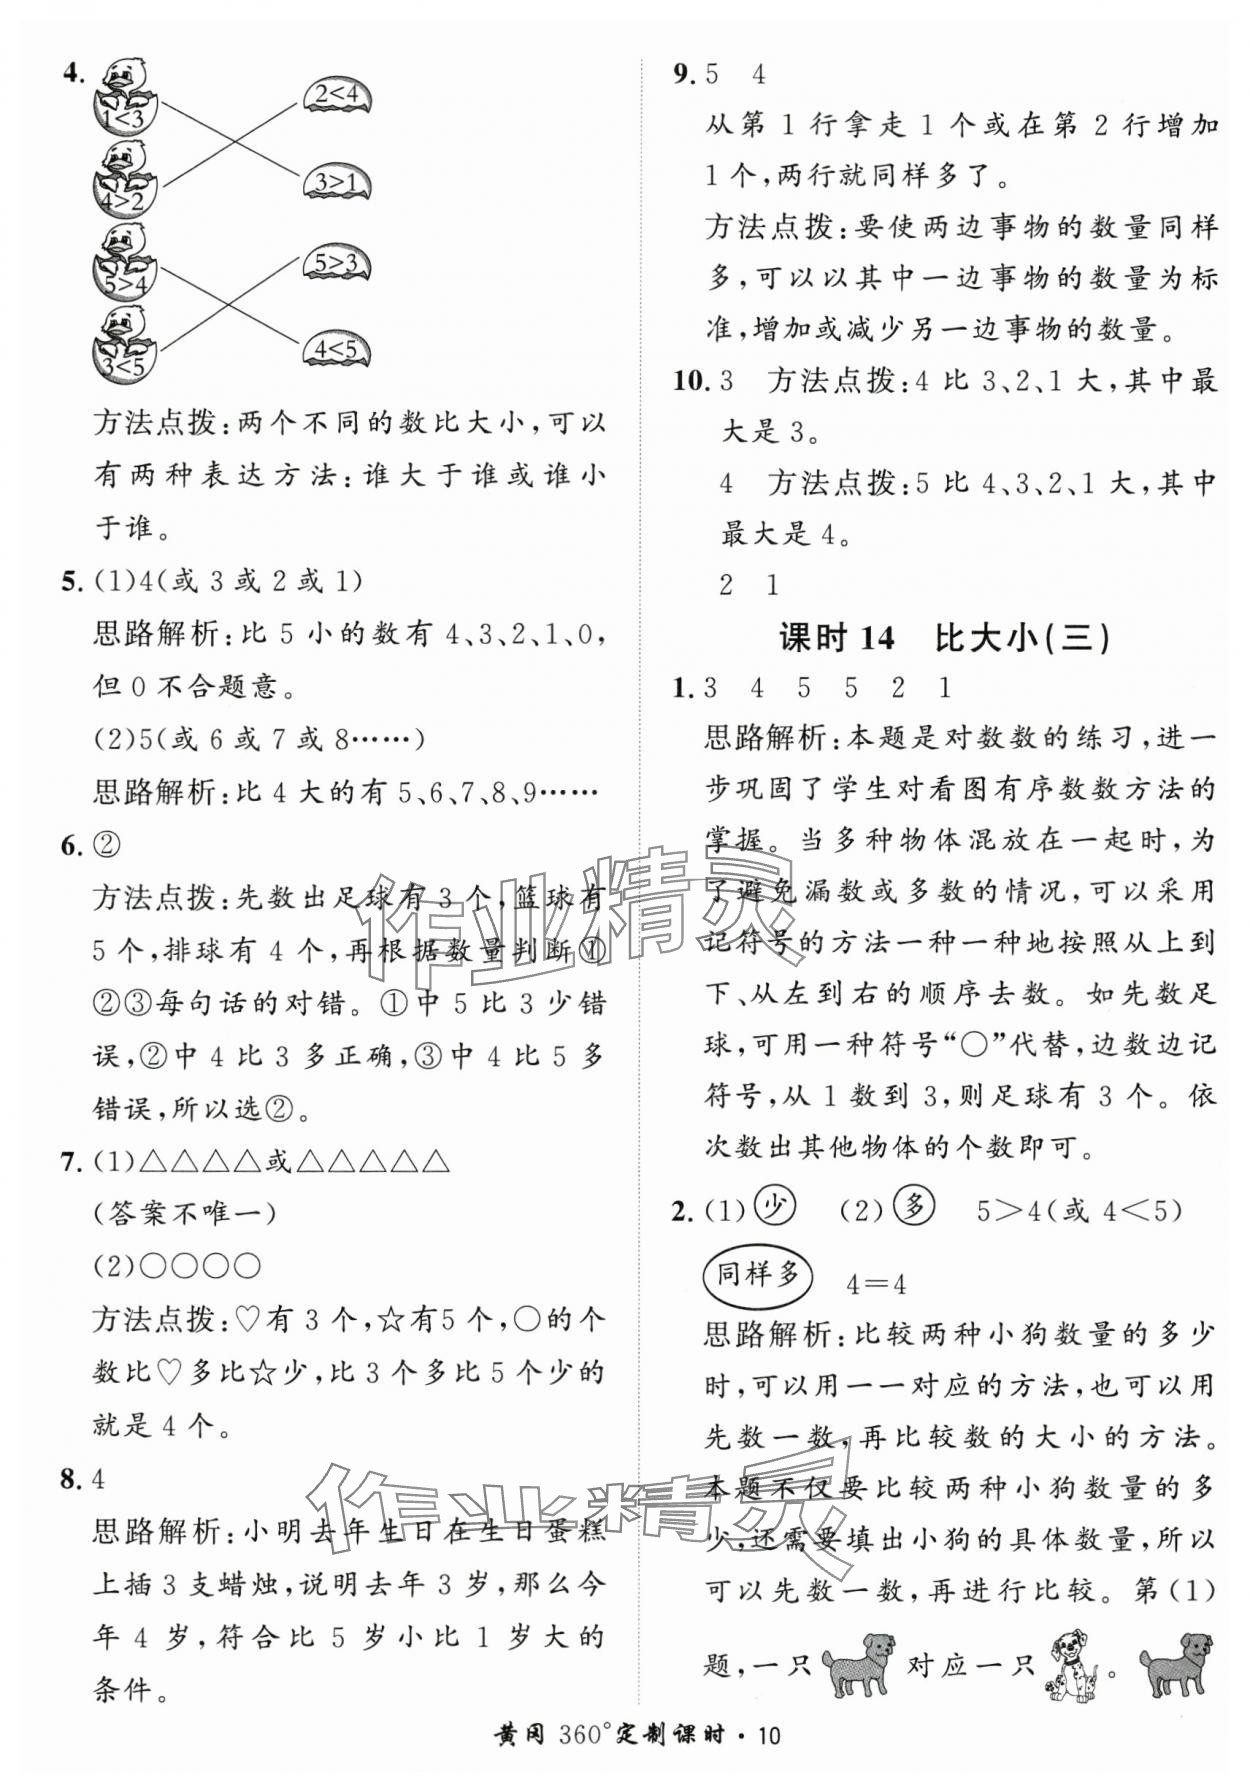 4.
1<3
2<4
4>2
3>1
5>4
5>3
3<5
4<5
方法点拨:两个不同的数比大小,可以
有两种表达方法:谁大于谁或谁小
于谁。
5. (1)4(或 3 或 2 或 1)
思路解析:比 5 小的数有 4、3、2、1、0,
但 0 不合题意。
(2)5(或 6 或 7 或 8……)
思路解析:比 4 大的有 5、6、7、8、9……
6. ②
方法点拨:先数出足球有 3 个,篮球有
5 个,排球有 4 个,再根据数量判断①
②③每句话的对错。①中 5 比 3 少错
误,②中 4 比 3 多正确,③中 4 比 5 多
错误,所以选②。
7. (1)△△△△或△△△△△
(答案不唯一)
(2)○○○○
方法点拨:♡有 3 个,☆有5 个,○的个
数比♡多比☆少,比 3 个多比 5 个少的
就是 4 个。
8. 4
思路解析:小明去年生日在生日蛋糕
上插 3 支蜡烛,说明去年 3 岁,那么今
年 4 岁,符合比 5 岁小比 1 岁大的
条件。
9. 5 4
从第 1 行拿走 1 个或在第 2 行增加
1 个,两行就同样多了。
方法点拨:要使两边事物的数量同样
多,可以以其中一边事物的数量为标
准,增加或减少另一边事物的数量。
10. 3 方法点拨:4 比 3、2、1 大,其中最
大是 3。
4 方法点拨:5 比 4、3、2、1 大,其中
最大是 4。
2 1
课时 14 比大小(三)
1. 3 4 5 5 2 1
思路解析:本题是对数数的练习,进一
步巩固了学生对看图有序数数方法的
掌握。当多种物体混放在一起时,为
了避免漏数或多数的情况,可以采用
记符号的方法一种一种地按照从上到
下、从左到右的顺序去数。如先数足
球,可用一种符号“○”代替,边数边记
符号,从 1 数到 3,则足球有 3 个。依
次数出其他物体的个数即可。
2. (1)少 (2)多 5>4(或 4<5)
同样多 4=4
思路解析:比较两种小狗数量的多少
时,可以用一一对应的方法,也可以用
先数一数,再比较数的大小的方法。
本题不仅要比较两种小狗数量的多
少,还需要填出小狗的具体数量,所以
可以先数一数,再进行比较。第(1)
题,一只 对应一只 。
作业精灵
作业精灵
黄冈 360°定制课时·10